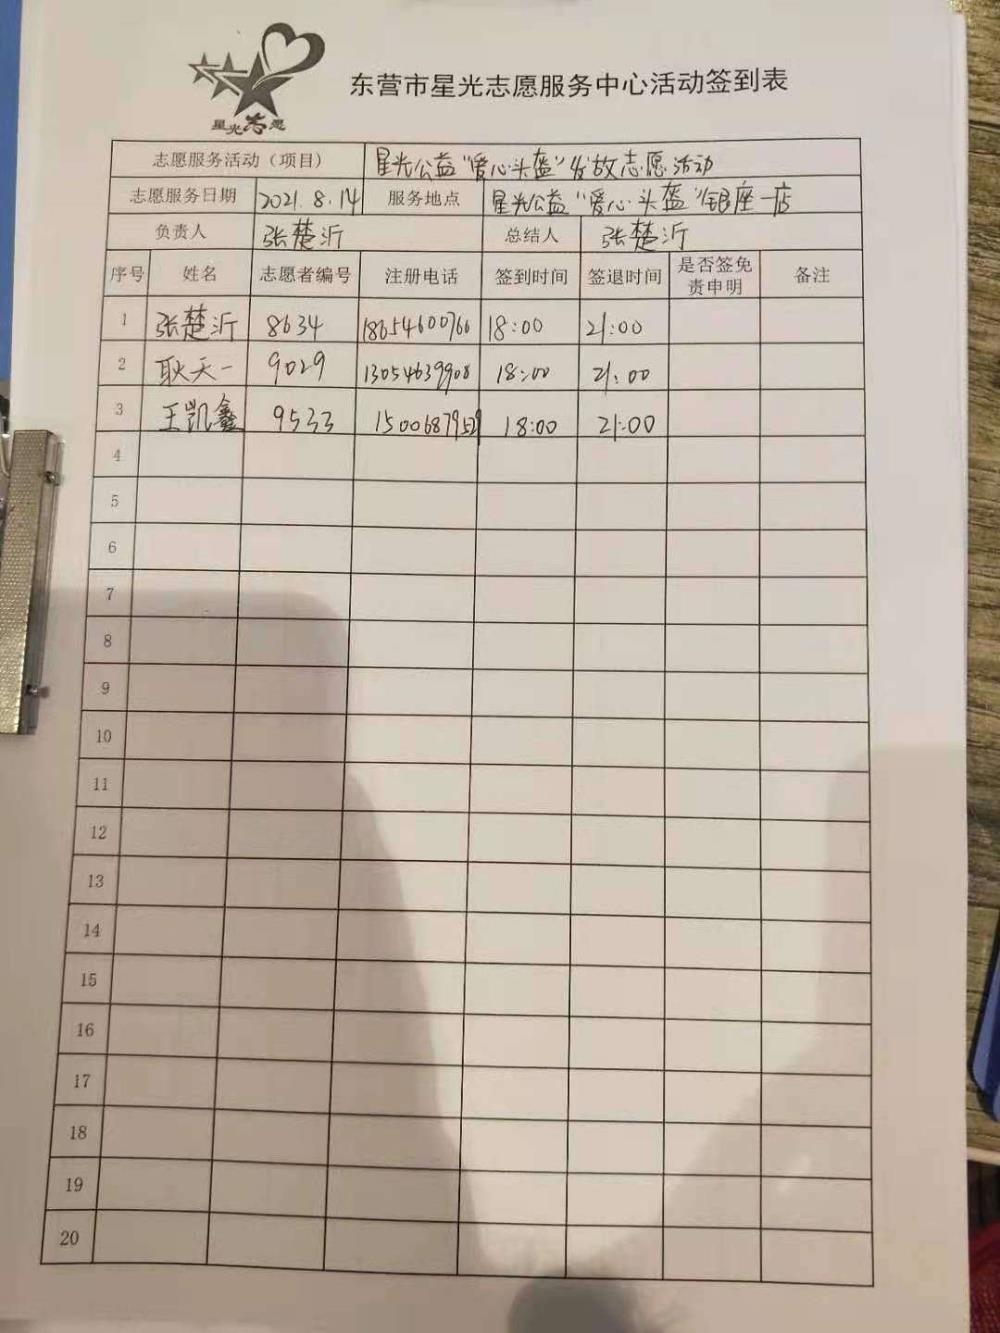 星光志愿
东营市星光志愿服务中心活动签到表
志愿服务活动（项目） 星光公益“爱心头盔”发放志愿活动
志愿服务日期 2021.8.14 服务地点 星光公益“爱心头盔”银座一店
负责人 张楚沂 总结人 张楚沂
序号 姓名 志愿者编号 注册电话 签到时间 签退时间 是否签免责申明 备注
1 张楚沂 8634 18654600766 18:00 21:00
2 耿天一 9029 13054639908 18:00 21:00
3 王凯鑫 9533 18:00 21:00
4
5
6
7
8
9
10
11
12
13
14
15
16
17
18
19
20